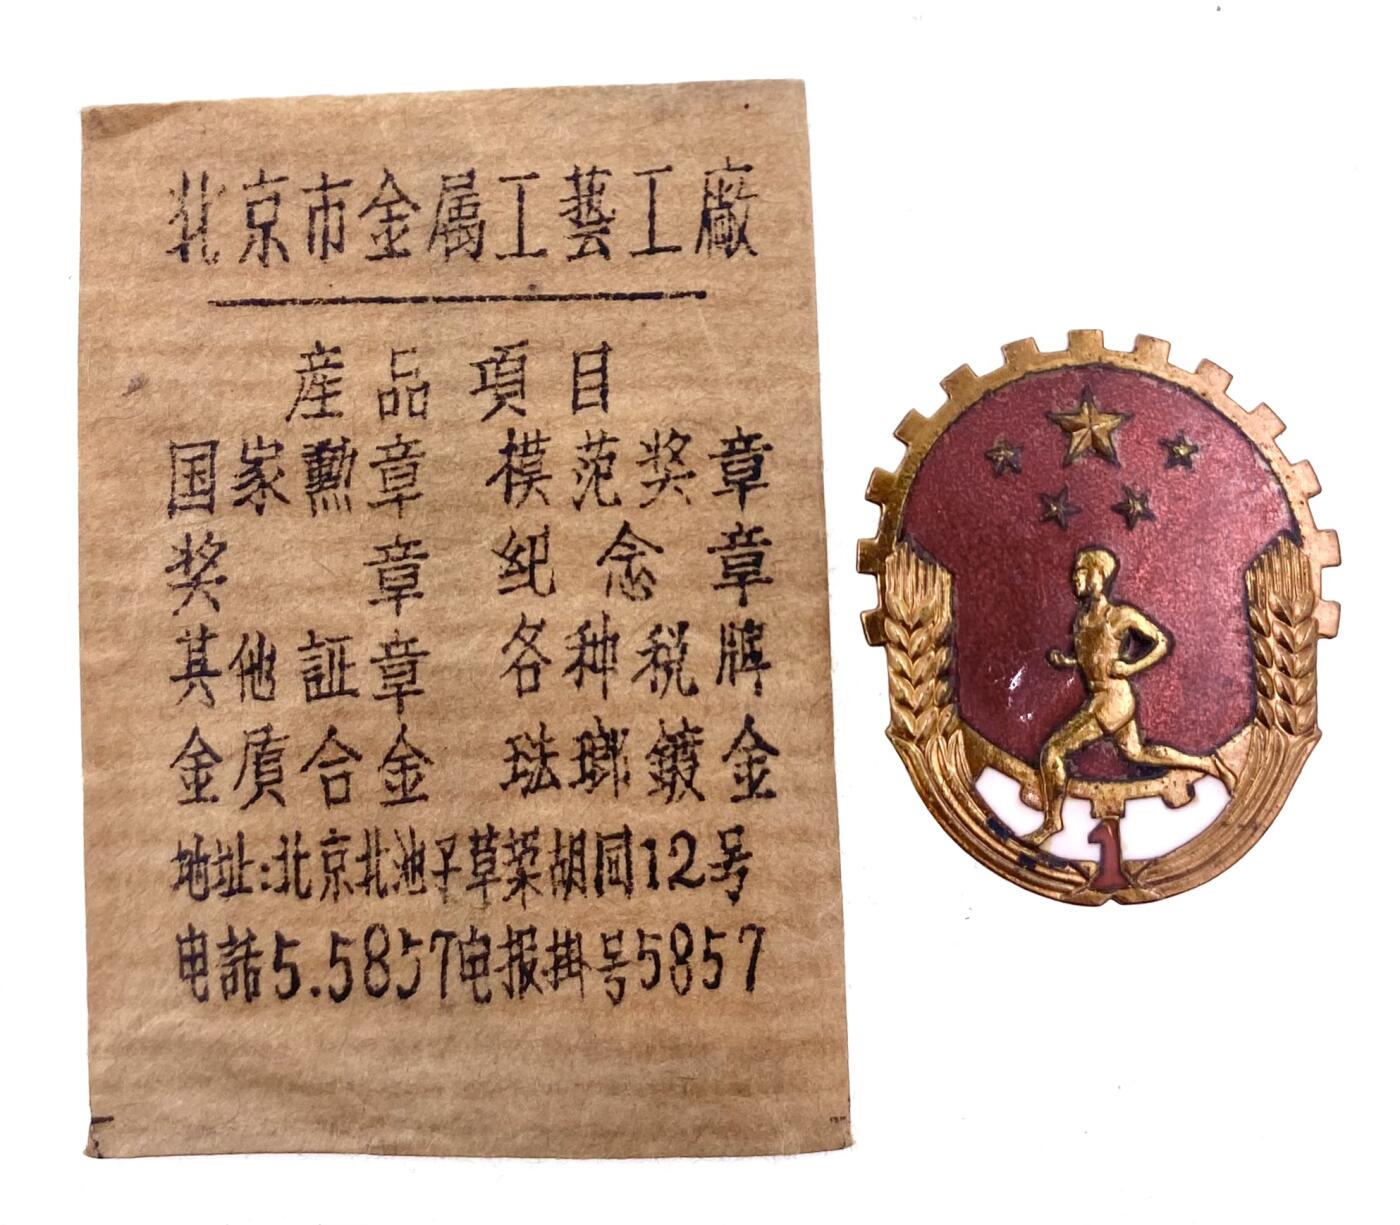 北京市金属工藝工廠
産品項目
国家勳章 模范奖章
奖章 紀念章
其他証章 各种税牌
金质合金 珐瑯鍍金
地址:北京北池子草垛胡同12号
电話5.5857电报掛号5857
1